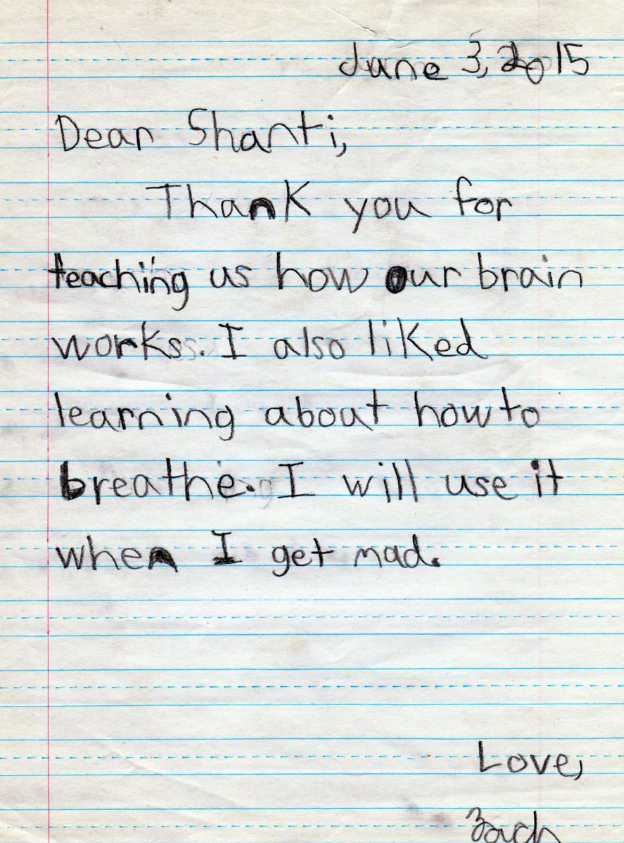 June 3, 2015
Dear Shanti,
Thank you for
teaching us how our brain
works. I also liked
learning about how to
breathe. I will use it
when I get mad.
Love,
Zach